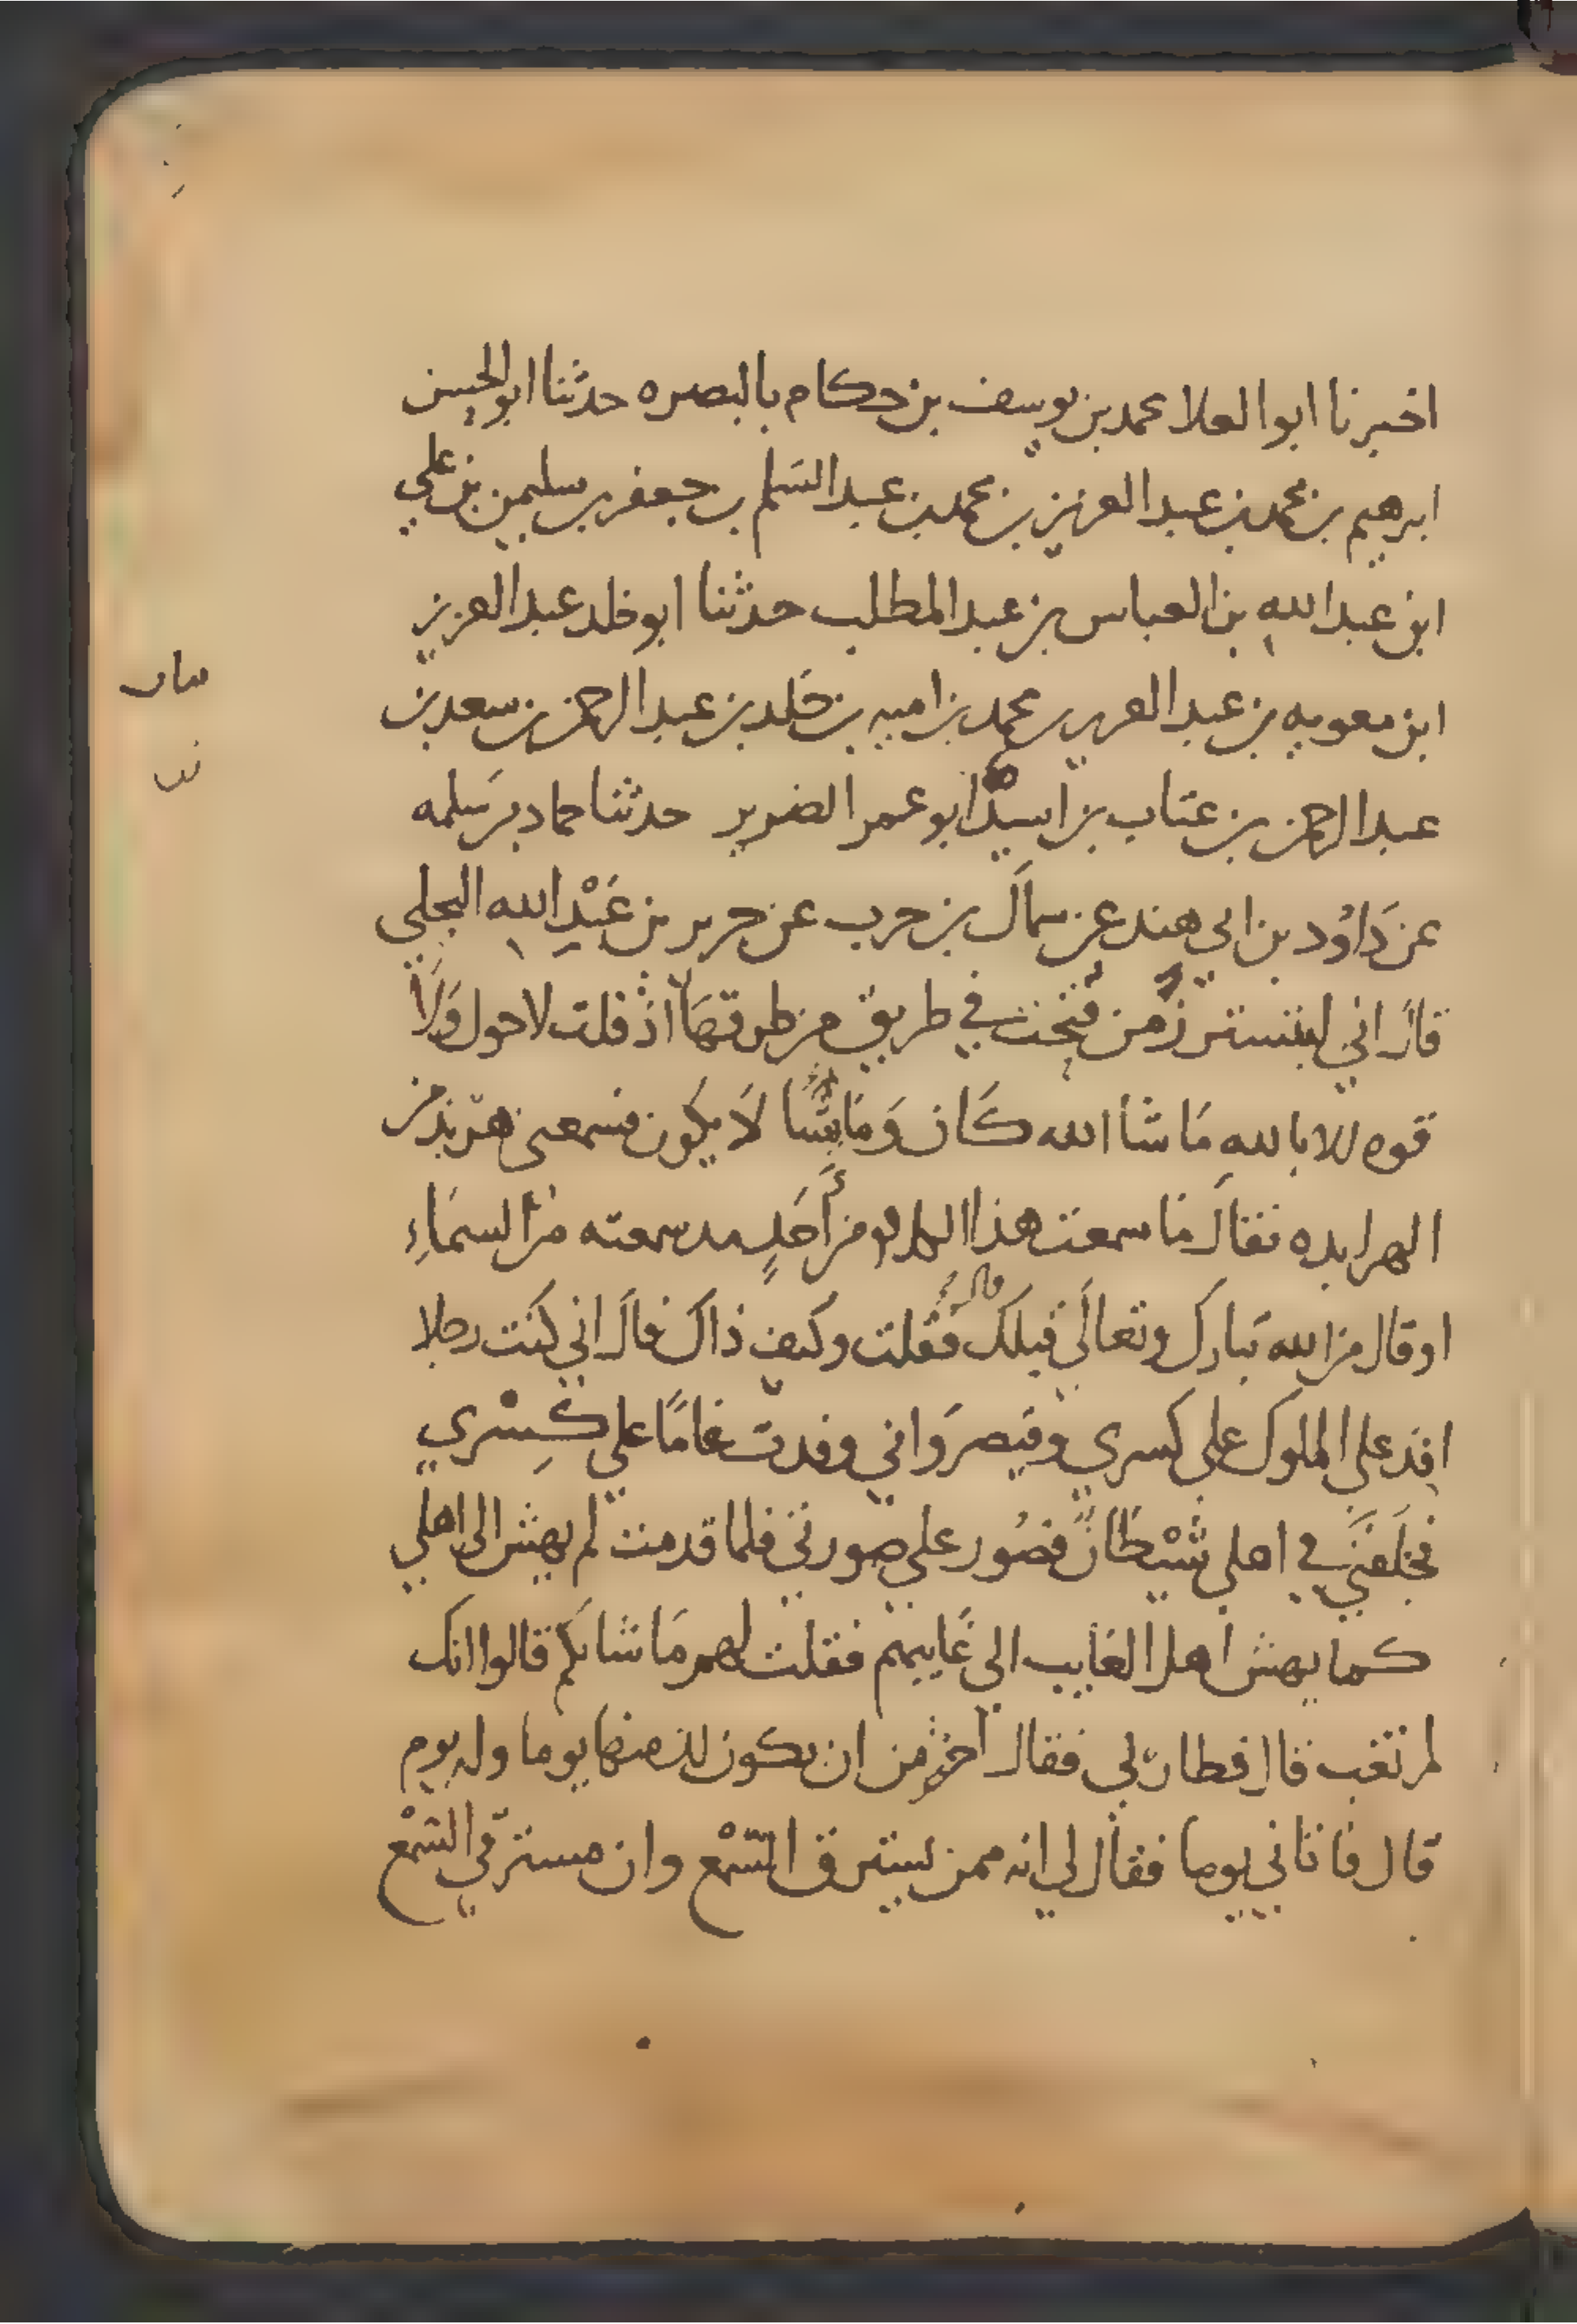 اخبرنا ابوا العلا محمد بن يوسف بن حكام بالبصره حدثنا ابو الحسن
ابرهيم بن محمد بن عبد العزيز بن محمد بن عبد السلم بن جعفر بن سليمن بن علي
ابن عبد الله بن العباس بن عبد المطلب حدثنا ابو خلد عبد العزيز
ابن معويه بن عبد العزيز بن محمد بن اميه بن خلد بن عبد الرحمن بن سعد بن
عبد الرحمن بن عتاب بن اسيد ابو عمر الضرير حدثنا حماد بن سلمه
عن داود بن ابي هند عن سماك بن حرب عن جرير بن عبد الله البجلي
قال اني لبتستر زمن فتحت في طريق من طرقها اذ قلت لا حول ولا
قوه الا بالله ما شا الله كان وما يشا لا يكون فسمعني هربذ من
الهرابده فقال ما سمعت هذا الكلام من أحد مذ سمعته من السماء
او قال من الله تبارك وتعالى قبلك فقلت وكيف ذاك قال اني كنت رجلا
افد على الملوك على كسري وقيصر واني وفدت عاما علي كسري
فخلفني في اهلي شيطان فصور علي صورتي فلما قدمت لم يهش الى اهلي
كما يهش اهل الغايب الى غايبهم فقلت لهم ما شانكم قالوا انك
لم تغب قال فطار بي فقال اختر من ان يكون لك منها يوما وله يوم
قال فاتاني يوما فقال لي انه ممن يسترق السمع وان مسترقي السمع